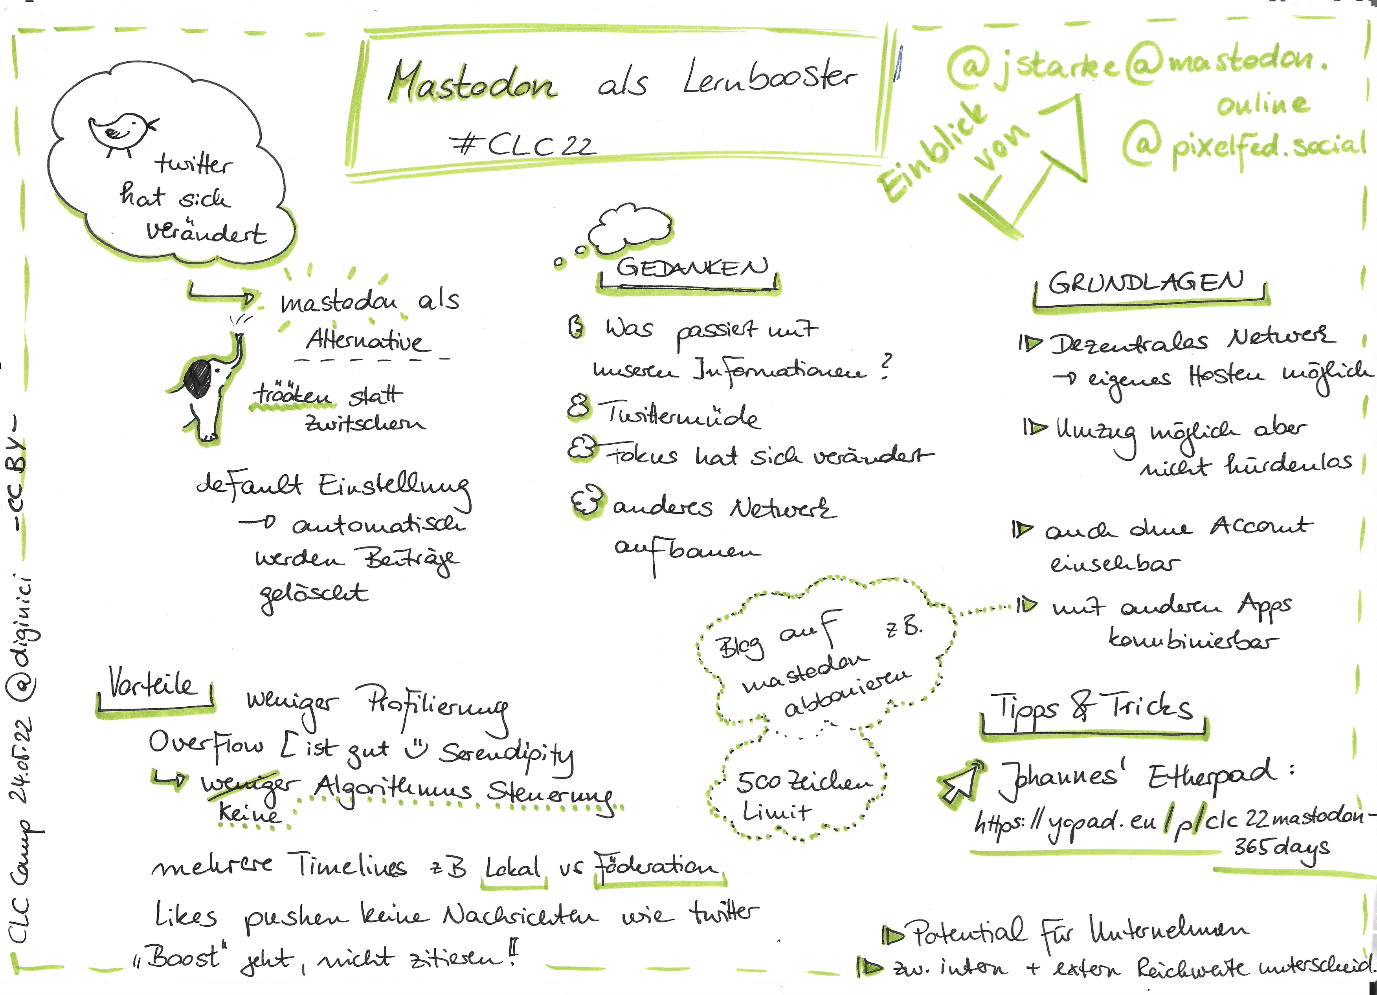 Mastodon als Lernbooster
#CLC22
Einblick von
@jstarke@mastodon.
online
@pixelfed.social
twitter
hat sich
verändert
mastodon als
Alternative
tröten statt
zwitschern
default Einstellung
→ automatisch
werden Beiträge
gelöscht
GEDANKEN
Was passiert mit
unseren Informationen?
Twittermüde
Fokus hat sich verändert
anderes Netwerk
aufbauen
GRUNDLAGEN
Dezentrales Netwerk
→ eigenes Hosten möglich
Umzug möglich aber
nicht hürdenlos
auch ohne Account
einsehbar
mit anderen Apps
kombinierbar
Blog auf z.B.
mastodon
abbonieren
500 Zeichen
Limit
Vorteile
weniger Profilierung
Overflow [ist gut ☺ Serendipity
weniger Algorithmus Steuerung
keine
mehrere Timelines zB Lokal vs Föderation
Likes pushen keine Nachrichten wie twitter
„Boost" geht, nicht zitieren!!
Tipps & Tricks
Johannes' Etherpad:
https://yopad.eu/p/clc22mastodon-
365days
Potential für Unternehmen
zw. intern + extern Reichweite unterscheid.
CLC Camp 24.05.22 @diginici -CC BY-